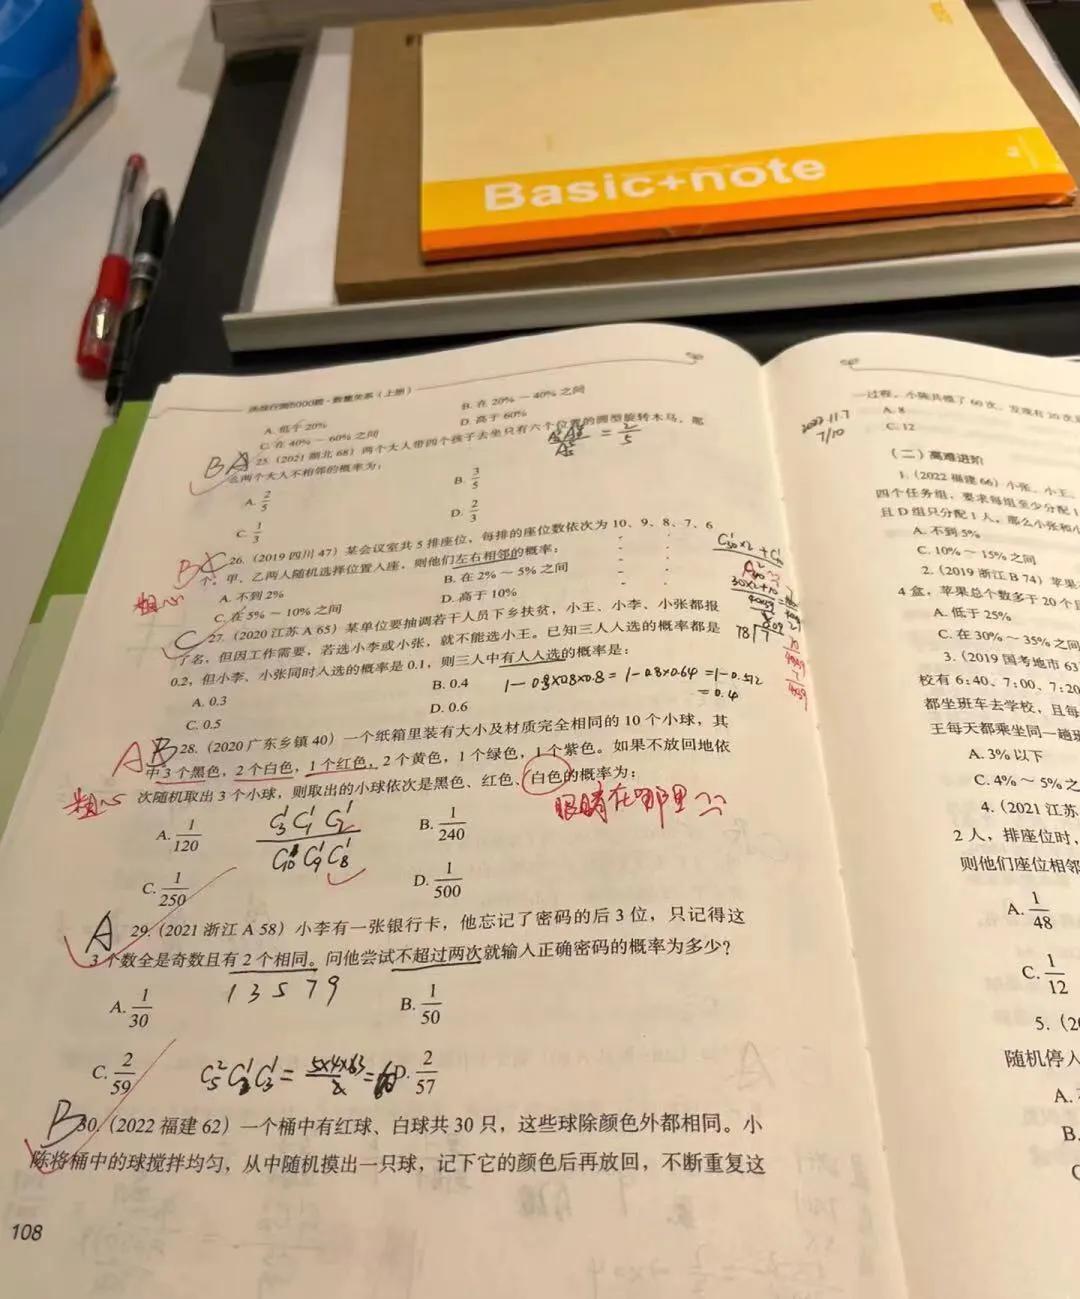 Basic+note
决战行测5000题·数量关系(上册)
A. 低于 20%
B. 在 20% ~ 40% 之间
C. 在 40% ~ 60% 之间
D. 高于 60%
BA 25. (2021 湖北 68) 两个大人带四个孩子去坐只有六个位置的圆型旋转木马,那
么两个大人不相邻的概率为:
= 2/5
A. 2/5
B. 3/5
C. 1/3
D. 2/3
BC 26. (2019 四川 47) 某会议室共 5 排座位,每排的座位数依次为 10、9、8、7、6
个。甲、乙两人随机选择位置入座,则他们左右相邻的概率:
粗心
A. 不到 2%
B. 在 2% ~ 5% 之间
C. 在 5% ~ 10% 之间
D. 高于 10%
C 27. (2020 江苏 A 65) 某单位要抽调若干人员下乡扶贫,小王、小李、小张都报
了名,但因工作需要,若选小李或小张,就不能选小王。已知三人入选的概率都是
0.2,但小李、小张同时入选的概率是 0.1,则三人中有人入选的概率是:
A. 0.3
B. 0.4
1-0.8×0.8×0.8=1-0.8×0.64=1-0.512
=0.4
C. 0.5
D. 0.6
AB 28. (2020 广东乡镇 40) 一个纸箱里装有大小及材质完全相同的 10 个小球,其
中 3 个黑色,2 个白色,1 个红色,2 个黄色,1 个绿色,1 个紫色。如果不放回地依
粗心 次随机取出 3 个小球,则取出的小球依次是黑色、红色、白色的概率为:
眼睛在哪里
A. 1/120
B. 1/240
C. 1/250
D. 1/500
A 29. (2021 浙江 A 58) 小李有一张银行卡,他忘记了密码的后 3 位,只记得这
3 个数全是奇数且有 2 个相同。问他尝试不超过两次就输入正确密码的概率为多少?
1 3 5 7 9
A. 1/30
B. 1/50
C. 2/59
D. 2/57
B 30. (2022 福建 62) 一个桶中有红球、白球共 30 只,这些球除颜色外都相同。小
陈将桶中的球搅拌均匀,从中随机摸出一只球,记下它的颜色后再放回,不断重复这
108
一过程,小陈共摸了 60 次,发现有 20 次
A. 8
C. 12
2022.11.7
7/10
(二) 高难进阶
1. (2022 福建 66) 小张、小王、
四个任务组,要求每组至少分配 1
且 D 组只分配 1 人。那么小张和小
A. 不到 5%
C. 10% ~ 15% 之间
2. (2019 浙江 B 74) 苹果
4 盒,苹果总个数多于 20 个
A. 低于 25%
C. 在 30% ~ 35% 之间
3. (2019 国考地市 63
校有 6:40、7:00、7:20
都坐班车去学校,且每
王每天都乘坐同一趟班
A. 3% 以下
C. 4% ~ 5% 之
4. (2021 江苏
2 人,排座位时,
则他们座位相邻
A. 1/48
C. 1/12
5. (20
随机停人
A.
B.